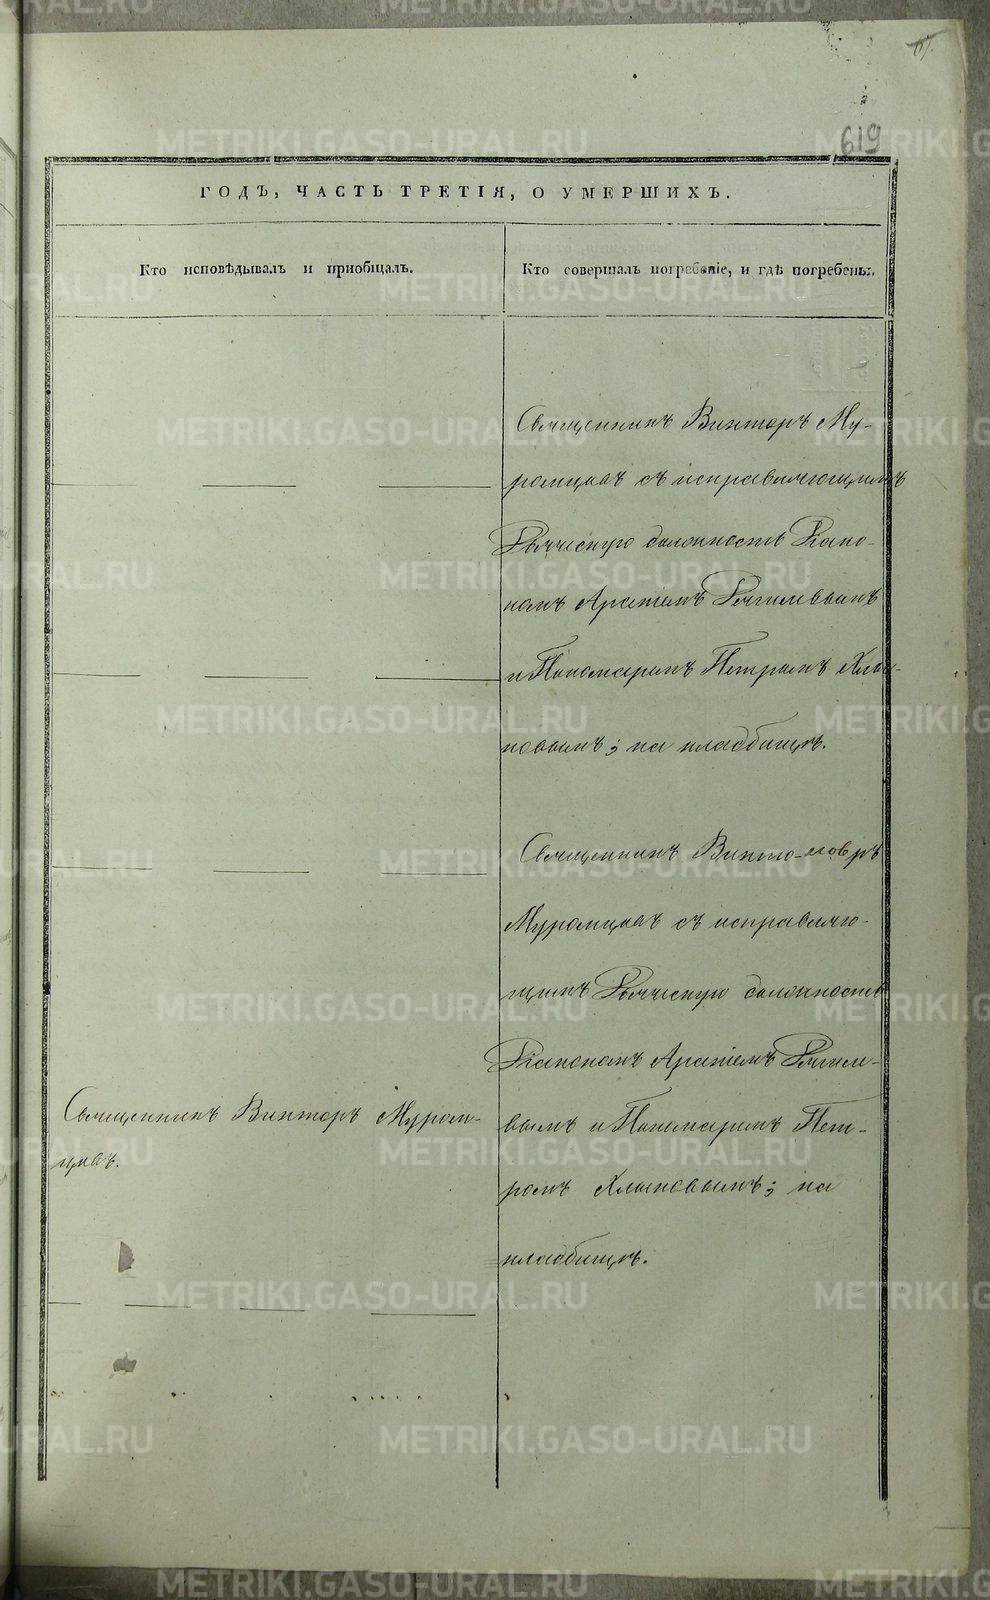 619
ГОДЪ, ЧАСТЬ ТРЕТІЯ, О УМЕРШИХЪ.
Кто исповѣдывалъ и пріобщалъ.
Кто совершалъ погребеніе, и гдѣ погребены.
Священникъ Викторъ Му-
ромцевъ съ исправляющимъ
должность Діако-
номъ
и Пономаремъ Петромъ Хлы-
новымъ; на кладбищѣ.
Священникъ Викто-
Муромцевъ съ исправляю-
щимъ должность
Діакономъ
вымъ и Пономаремъ Пет-
ромъ Хлыновымъ; на
кладбищѣ.
Священникъ Викторъ Муром-
цевъ.
METRIKI.GASO-URAL.RU